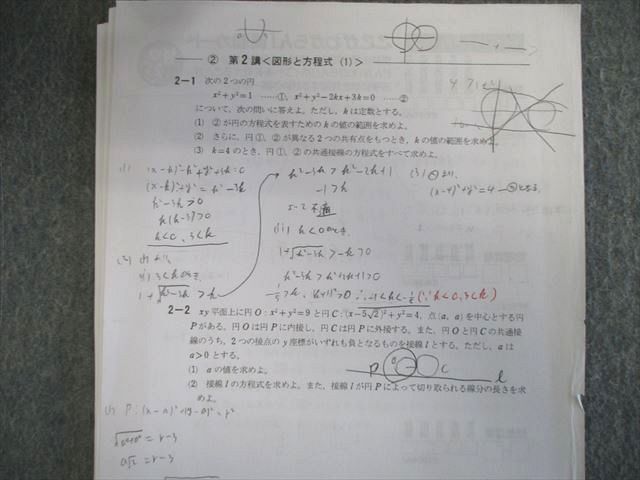 ② 第2講<図形と方程式 (1)>
2-1 次の2つの円
x²+y²=1 ……①, x²+y²-2kx+3k=0 ……②
について，次の問いに答えよ。ただし，kは定数とする。
(1) ②が円の方程式を表すためのkの値の範囲を求めよ。
(2) さらに，円①，②が異なる2つの共有点をもつとき，kの値の範囲を求め
(3) k=4のとき，円①，②の共通接線の方程式をすべて求めよ。
(x-k)²-k²+y²+3k=0
(x-k)²+y²=k²-3k
k²-3k>0
k(k-3)>0
k<0, 3<k
(2)
(i) 3<kのとき,
1+√k²-3k>k
k²-3k>k²-2k+1
-1>k
不適
(ii) k<0のとき
1+√k²-3k>-k>0
k²-3k>k²+2k+1>0
(3) ②より,
(x-4)²+y²=4
2-2 xy平面上に円O：x²+y²=9と円C：(x-5√2)²+y²=4，点(a, a)を中心とする円
Pがある。円Oは円Pに内接し，円Cは円Pに外接する。また，円Oと円Cの共通接
線のうち，2つの接点のy座標がいずれも負となるものを接線lとする。ただし，aは
a>0とする。
(1) aの値を求めよ。
(2) 接線lの方程式を求めよ。また，接線lが円Pによって切り取られる線分の長さを求
めよ。
P O C l
(1) P：(x-a)²+(y-a)²=r²
√a²+a²=r-3
a√2=r-3